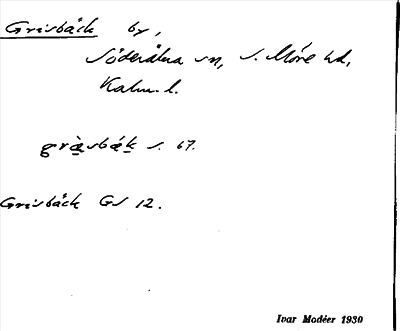 Gräsbäck by,
Söderåkra sn, S. Möre hd,
Kalm. l.
gràsbák s. 67.
Gräsbäck GS 12.
Ivar Modéer 1930